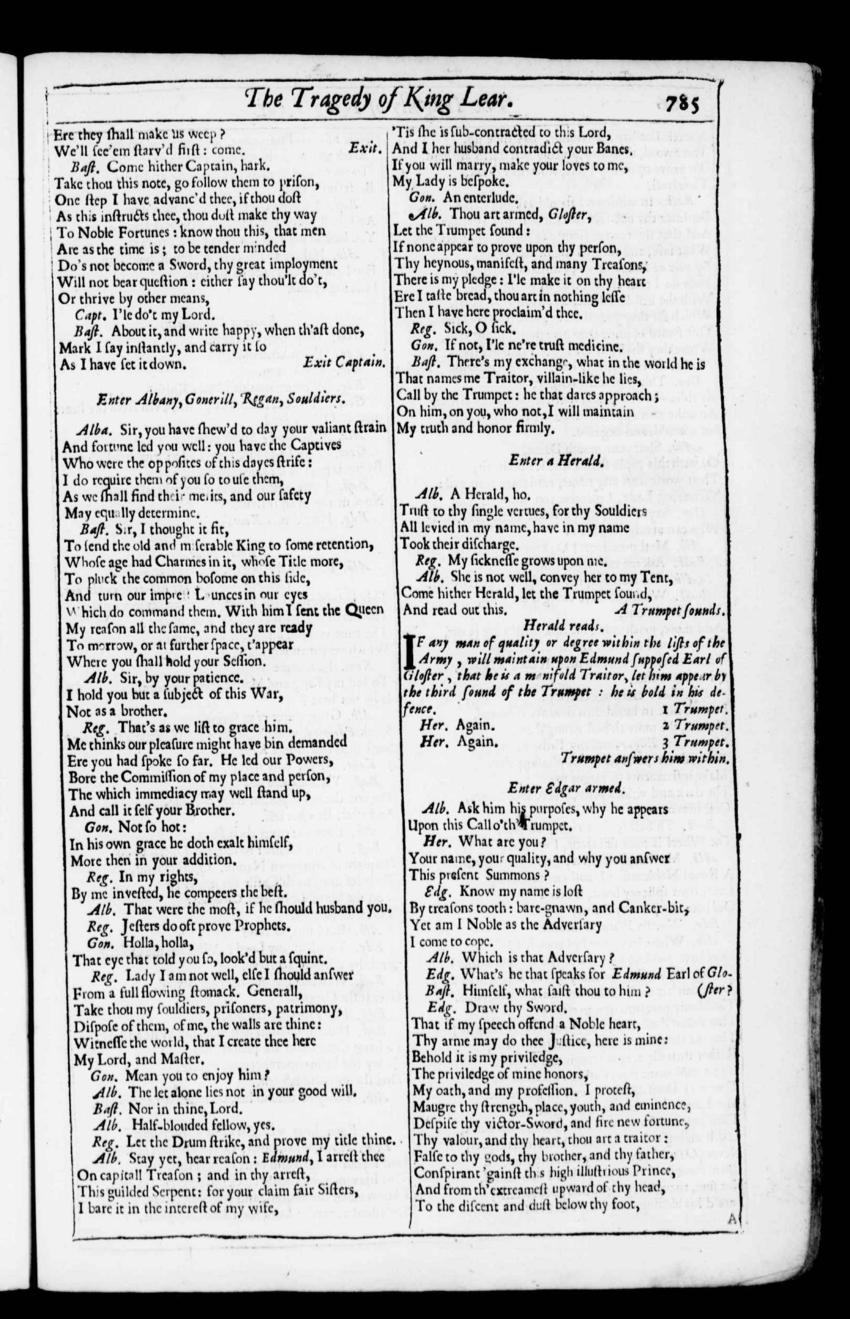 The Tragedy of King Lear.
785
Ere they ſhall make us weep?
We'll ſee'em ſtarv'd firſt: come. Exit.
Baſt. Come hither Captain, hark.
Take thou this note, go follow them to priſon,
One ſtep I have advanc'd thee, if thou doſt
As this inſtructs thee, thou doſt make thy way
To Noble Fortunes: know thou this, that men
Are as the time is; to be tender minded
Do's not become a Sword, thy great imployment
Will not bear queſtion: either ſay thou'lt do't,
Or thrive by other means,
Capt. I'le do't my Lord.
Baſt. About it, and write happy, when th'aſt done,
Mark I ſay inſtantly, and carry it ſo
As I have ſet it down. Exit Captain.
Enter Albany, Gonerill, Regan, Souldiers.
Alba. Sir, you have ſhew'd to day your valiant ſtrain
And fortune led you well: you have the Captives
Who were the oppoſites of this dayes ſtrife:
I do require them of you ſo to uſe them,
As we ſhall find their merits, and our ſafety
May equally determine.
Baſt. Sir, I thought it fit,
To ſend the old and miſerable King to ſome retention,
Whoſe age had Charmes in it, whoſe Title more,
To pluck the common boſome on this ſide,
And turn our impre L unces in our eyes
Which do command them. With him I ſent the Queen
My reaſon all the ſame, and they are ready
To morrow, or at further ſpace, t'appear
Where you ſhall hold your Seſſion.
Alb. Sir, by your patience.
I hold you but a ſubject of this War,
Not as a brother.
Reg. That's as we liſt to grace him.
Me thinks our pleaſure might have bin demanded
Ere you had ſpoke ſo far. He led our Powers,
Bore the Commiſſion of my place and perſon,
The which immediacy may well ſtand up,
And call it ſelf your Brother.
Gon. Not ſo hot:
In his own grace he doth exalt himſelf,
More then in your addition.
Reg. In my rights,
By me inveſted, he compeers the beſt.
Alb. That were the moſt, if he ſhould husband you.
Reg. Jeſters do oft prove Prophets.
Gon. Holla, holla,
That eye that told you ſo, look'd but a ſquint.
Reg. Lady I am not well, elſe I ſhould anſwer
From a full flowing ſtomack. Generall,
Take thou my ſouldiers, priſoners, patrimony,
Diſpoſe of them, of me, the walls are thine:
Witneſſe the world, that I create thee here
My Lord, and Maſter.
Gon. Mean you to enjoy him?
Alb. The let alone lies not in your good will.
Baſt. Nor in thine, Lord.
Alb. Half-blouded fellow, yes.
Reg. Let the Drum ſtrike, and prove my title thine.
Alb. Stay yet, hear reaſon: Edmund, I arreſt thee
On capitall Treaſon; and in thy arreſt,
This guilded Serpent: for your claim fair Siſters,
I bare it in the intereſt of my wife,
'Tis ſhe is ſub-contracted to this Lord,
And I her husband contradict your Banes.
If you will marry, make your loves to me,
My Lady is beſpoke.
Gon. An enterlude.
Alb. Thou art armed, Gloſter,
Let the Trumpet ſound:
If none appear to prove upon thy perſon,
Thy heynous, manifeſt, and many Treaſons,
There is my pledge: I'le make it on thy heart
Ere I taſte bread, thou art in nothing leſſe
Then I have here proclaim'd thee.
Reg. Sick, O ſick.
Gon. If not, I'le ne're truſt medicine.
Baſt. There's my exchange, what in the world he is
That names me Traitor, villain-like he lies,
Call by the Trumpet: he that dares approach;
On him, on you, who not, I will maintain
My truth and honor firmly.
Enter a Herald.
Alb. A Herald, ho.
Truſt to thy ſingle vertues, for thy Souldiers
All levied in my name, have in my name
Took their diſcharge.
Reg. My ſickneſſe grows upon me.
Alb. She is not well, convey her to my Tent,
Come hither Herald, let the Trumpet ſound,
And read out this. A Trumpet ſounds.
Herald reads.
IF any man of quality or degree within the liſts of the
Army, will maintain upon Edmund ſuppoſed Earl of
Gloſter, that he is a manifold Traitor, let him appear by
the third ſound of the Trumpet: he is bold in his de-
fence. 1 Trumpet.
Her. Again. 2 Trumpet.
Her. Again. 3 Trumpet.
Trumpet anſwers him within.
Enter Edgar armed.
Alb. Ask him his purpoſes, why he appears
Upon this Call o'th'Trumpet.
Her. What are you?
Your name, your quality, and why you anſwer
This preſent Summons?
Edg. Know my name is loſt
By treaſons tooth: bare-gnawn, and Canker-bit,
Yet am I Noble as the Adverſary
I come to cope.
Alb. Which is that Adverſary?
Edg. What's he that ſpeaks for Edmund Earl of Glo-
Baſt. Himſelf, what ſaiſt thou to him? (ſter?
Edg. Draw thy Sword.
That if my ſpeech offend a Noble heart,
Thy arme may do thee Juſtice, here is mine:
Behold it is my priviledge,
The priviledge of mine honors,
My oath, and my profeſſion. I proteſt,
Maugre thy ſtrength, place, youth, and eminence,
Deſpiſe thy victor-Sword, and fire new fortune,
Thy valour, and thy heart, thou art a traitor:
Falſe to thy gods, thy brother, and thy father,
Conſpirant 'gainſt this high illuſtrious Prince,
And from th'extreameſt upward of thy head,
To the diſcent and duſt below thy foot,
A